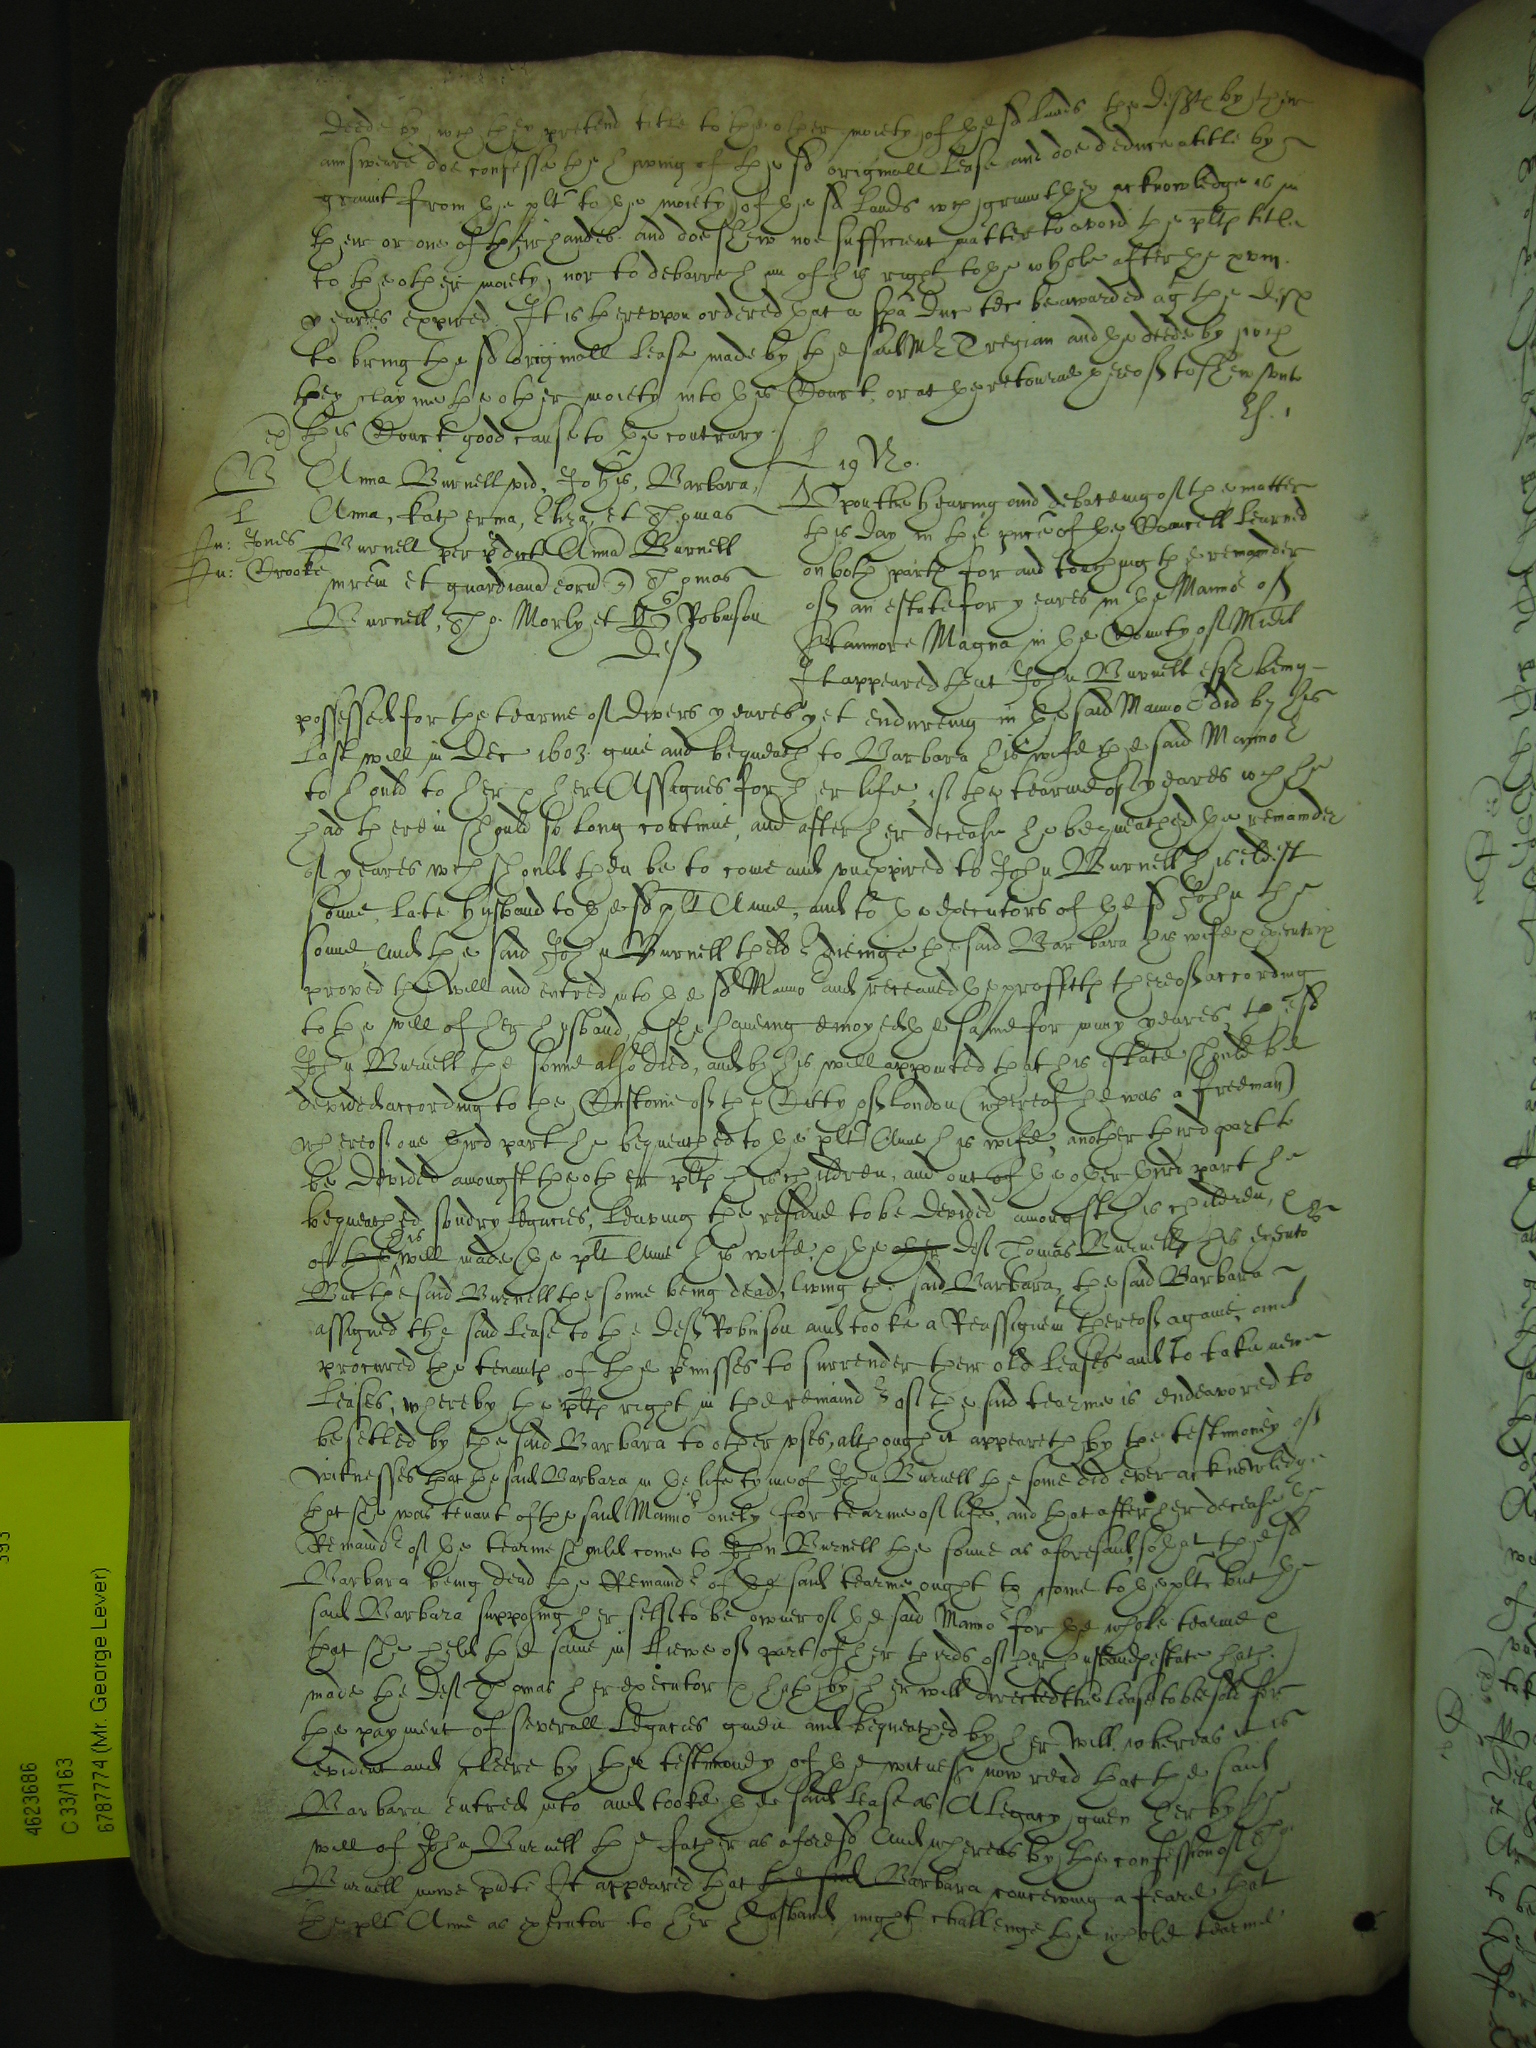 deede by wch they pretend title to the other moiety of the sd lands the defts by their
answeare doe confesse the hauing of the sd originall lease and doe deduce a title by
graunt from the plt to the moiety of the sd lands wch graunt they acknowledge is in
their or one of their handes and doe shew noe sufficient matter to avoid the plts title
to the other moiety, nor to debarre him of his right to the whole after the xviii
yeares expired. It is therevpon ordered that a spa duc tec be awarded agt the defts
to bring the sd originall lease made by the said Mr Tregian and the deede by wch
they clayme the other moiety into this Court, or at the retourne thereof to shew vnto
this Court good cause to the contrary
Anna Burnell vid, Johis, Barbara,
Anna, Katherina, Eliza, et Thomas
Burnell per dict Anna Burnell
mrem et guardiana eorum Thomas
Burnell, Tho. Morly et Robinson
deft
Jn: Jones
Jn: Brooke
19 No.
Vpon the hearing and debateing of the matter
this day in the pnce of the Councell learned
on both parts for and touching the remainder
of an estate for yeares in the Manno of
Stanmore Magna in the County of Midd
It appeared that John Burnell esqr being
possessed for the tearme of divers yeares yet endureing in the said Manno did by his
last will in Dec 1603 giue and bequeath to Barbara his wife the said Manno
to hould to her & her Assignes for her life, if the tearme of yeares wch he
had therein should so long continue, and after her decease he bequeathed the remainder
of yeares wch should then be to come and vnexpired to John Burnell his eldest
sonne, late husband to the sd plt Anne, and to the executors of the sd John the
sonne, And the said John Burnell theld dieinge the said Barbara his wife & executrix
proved the Will and entred into the sd Manno and receaued the proffitts thereof according
to the will of her husband, & she haueing enioyed the same for many yeares, the sd
John Burnell the sonne also died, and by his will appointed that his estate should be
devided according to the Custome of the Citty of London (whereof he was a freeman)
whereof one third part he bequeathed to the plt Anne his wife, another third part to
be devided amongst the other plts his children, and out of the other third part he
bequeathed sundry legacies, leaving the residue to be devided amongst his children, &
of the his will made the plt Anne his wife & the other deft Thomas Burnell his executo
But the said Burnell the sonne being dead, living the said Barbara, the said Barbara
assigned the said lease to the deft Robinson and tooke a Reassignemt thereof againe, and
procured the tenants of the pmisses to surrender their old leases and to take new
leases, whereby the plts right in the remaind of the said tearme is endeavored to
be setled by the said Barbara to other vses, although it appeareth by the testimoney of
witnesses that the said Barbara in the life tyme of John Burnell the sonne did ever acknowledge
that she was tenant of the said Manno onely for tearme of life, and that after her decease the
Remaind of the tearme should come to John Burnell the sonne as aforesaid, so that the sd
Barbara being dead the Remaind of the said tearme ought to come to the plts but the
said Barbara supposing her selfe to be owner of the said Manno for the whole tearme &
that she held the same in liewe of part of her thirds of her husbands estate hath
made the deft Thomas her executor & hath by her will directed the lease to be sold for
the payment of severall Legacies giuen and bequeathed by her will, whereas it is
evident and cleere by the testimony of the witness now read that the said
Barbara entred into and tooke the said lease as A Legacy given her by the
will of John Burnell the father as aforesd And whereas by the confession of Tho
Burnell nowe pnte It appeared that the said Barbara conceiuing a feare that
the plt Anne as executor to her husband might challenge the whole tearme
393
4623686
C 33/163
6787774 (Mr. George Lever)